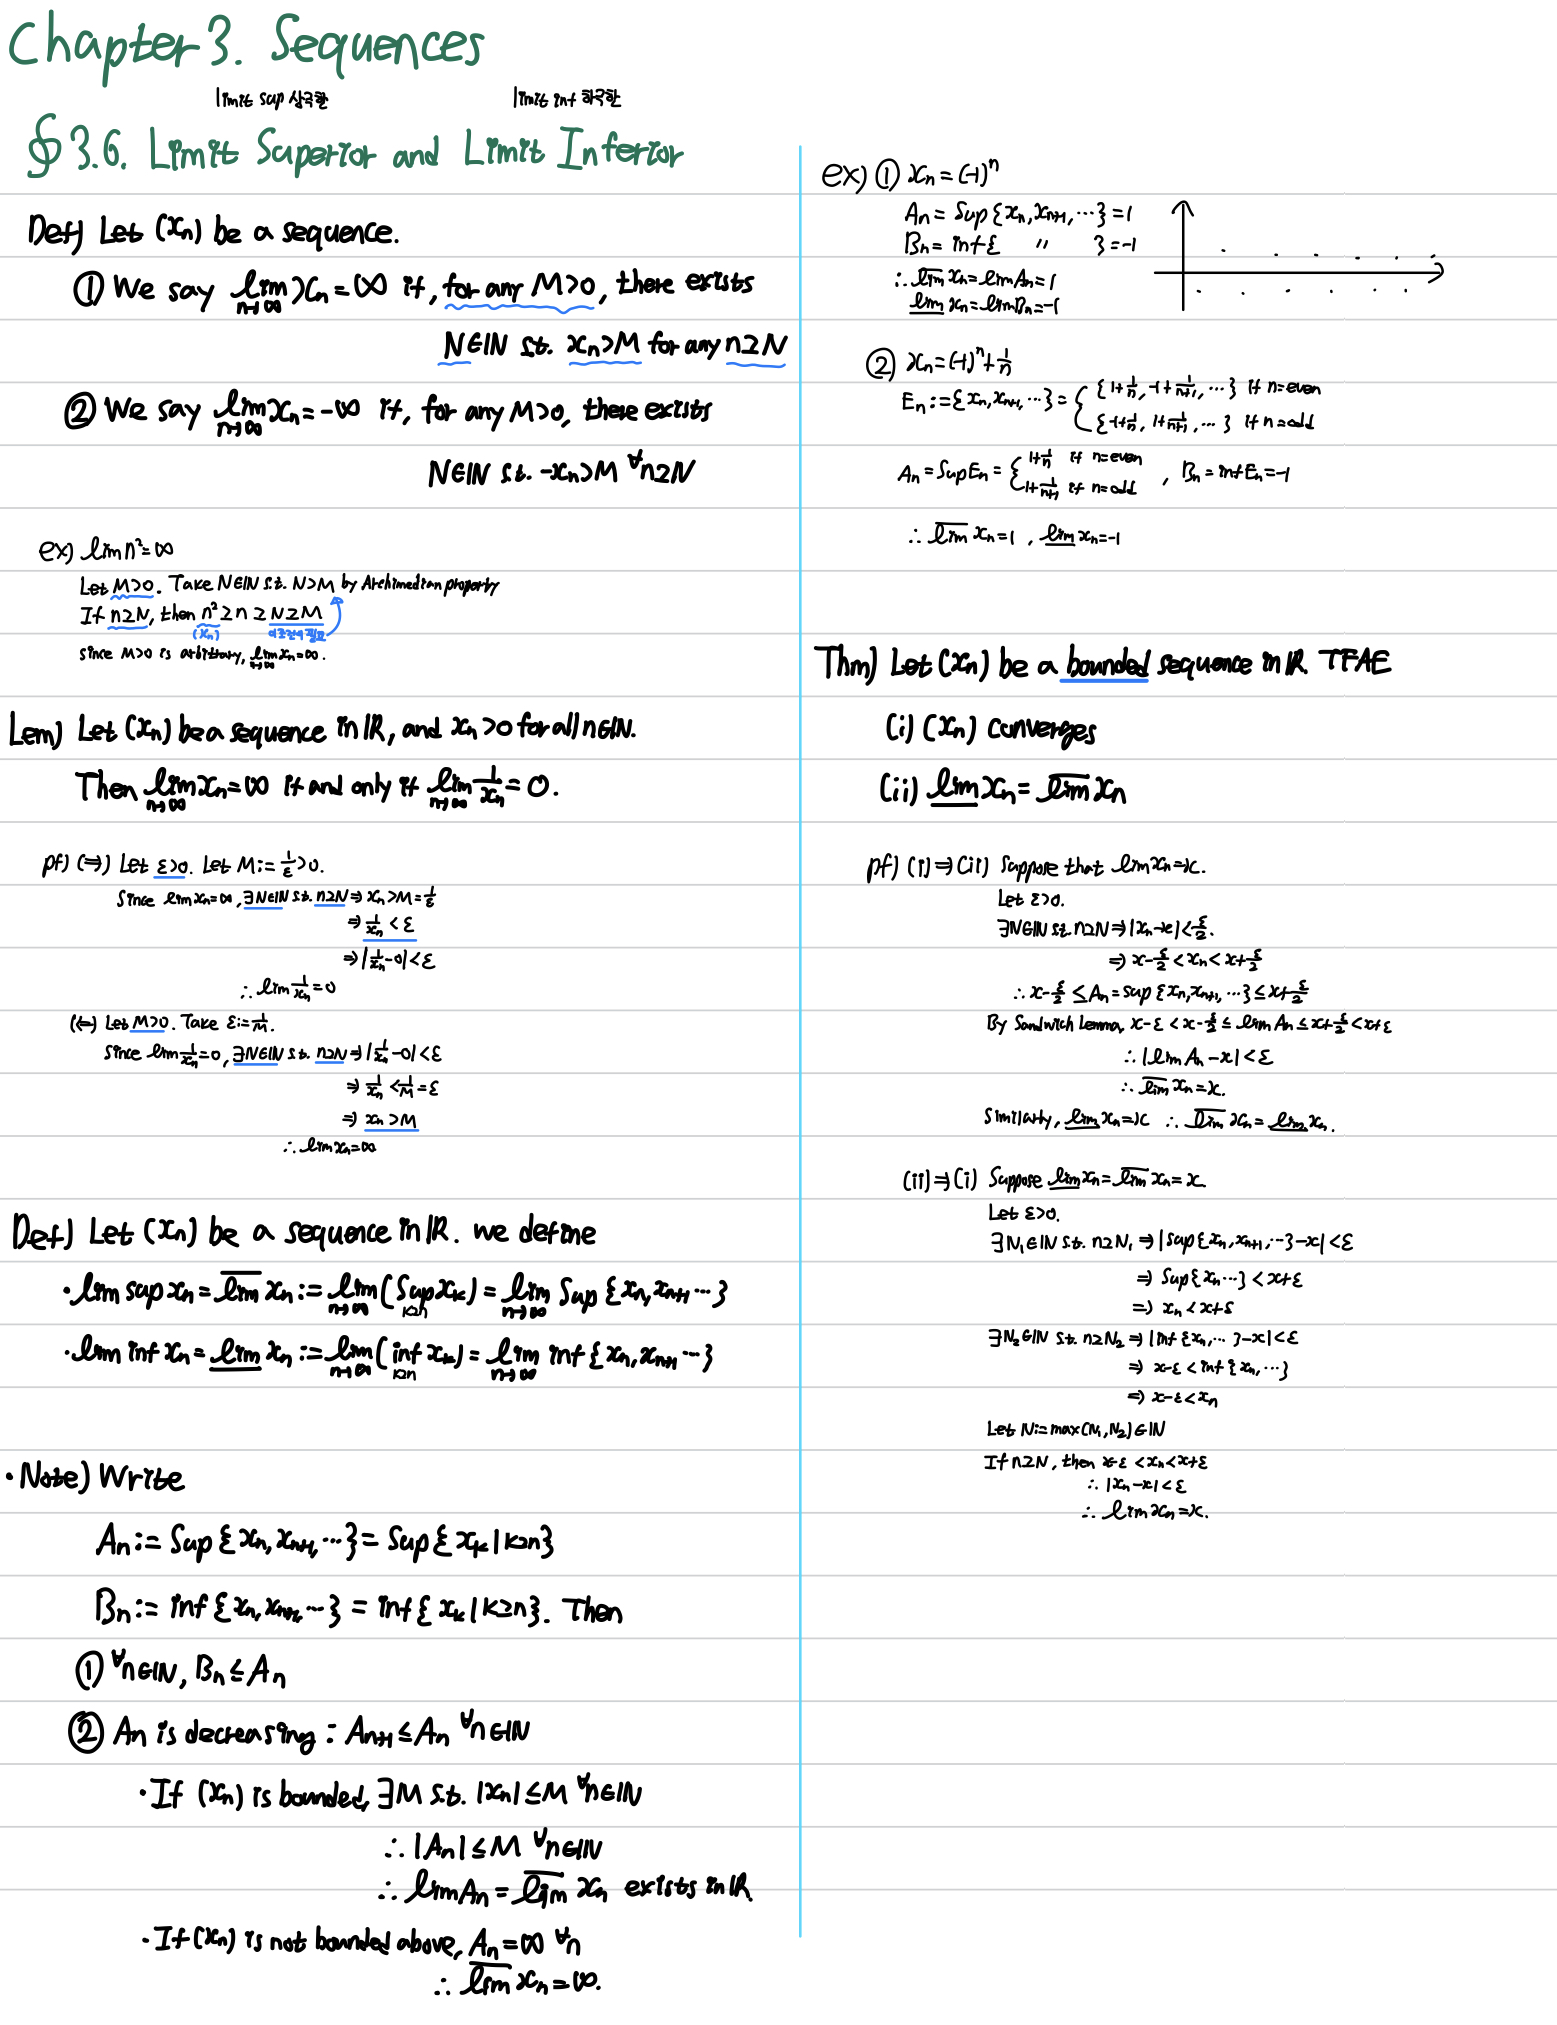 Chapter 3. Sequences
limit sup 상극한
limit inf 하극한
§ 3.6. Limit Superior and Limit Inferior
Def) Let (xₙ) be a sequence.
① We say lim xₙ = ∞ if, for any M>0, there exists
n→∞
N∈ℕ s.t. xₙ>M for any n≥N
② We say lim xₙ = -∞ if, for any M>0, there exists
n→∞
N∈ℕ s.t. -xₙ>M ∀n≥N
ex) lim n² = ∞
Let M>0. Take N∈ℕ s.t. N>M by Archimedian property
If n≥N, then n² ≥ n ≥ N ≥ M
(xₙ) 이조건이 필요
Since M>0 is arbitrary, lim xₙ = ∞.
n→∞
Lem) Let (xₙ) be a sequence in ℝ, and xₙ>0 for all n∈ℕ.
Then lim xₙ = ∞ if and only if lim 1/xₙ = 0.
n→∞ n→∞
pf) (⇒) Let ε>0. Let M := 1/ε > 0.
Since lim xₙ = ∞, ∃N∈ℕ s.t. n≥N ⇒ xₙ > M = 1/ε
⇒ 1/xₙ < ε
⇒ |1/xₙ - 0| < ε
∴ lim 1/xₙ = 0
(⇐) Let M>0. Take ε := 1/M.
Since lim 1/xₙ = 0, ∃N∈ℕ s.t. n≥N ⇒ |1/xₙ - 0| < ε
⇒ 1/xₙ < 1/M = ε
⇒ xₙ > M
∴ lim xₙ = ∞
Def) Let (xₙ) be a sequence in ℝ. we define
· lim sup xₙ = l̅i̅m̅ xₙ := lim ( sup xₖ ) = lim sup {xₙ, xₙ₊₁ ⋯}
n→∞ k≥n n→∞
· lim inf xₙ = l̲i̲m̲ xₙ := lim ( inf xₖ ) = lim inf {xₙ, xₙ₊₁ ⋯}
n→∞ k≥n n→∞
· Note) Write
Aₙ := Sup {xₙ, xₙ₊₁, ⋯} = Sup {xₖ | k≥n}
Bₙ := inf {xₙ, xₙ₊₁, ⋯} = inf {xₖ | k≥n}. Then
① ∀n∈ℕ, Bₙ ≤ Aₙ
② Aₙ is decreasing : Aₙ₊₁ ≤ Aₙ ∀n∈ℕ
· If (xₙ) is bounded, ∃M s.t. |xₙ| ≤ M ∀n∈ℕ
∴ |Aₙ| ≤ M ∀n∈ℕ
∴ lim Aₙ = l̅i̅m̅ xₙ exists in ℝ.
· If (xₙ) is not bounded above, Aₙ = ∞ ∀n
∴ l̅i̅m̅ xₙ = ∞.
ex) ① xₙ = (-1)ⁿ
Aₙ = Sup {xₙ, xₙ₊₁, ⋯} = 1
Bₙ = inf { 〃 } = -1
∴ l̅i̅m̅ xₙ = lim Aₙ = 1
l̲i̲m̲ xₙ = lim Bₙ = -1
② xₙ = (-1)ⁿ + 1/n
Eₙ := {xₙ, xₙ₊₁, ⋯} = { {1+1/n, -1+1/(n+1), ⋯} if n=even
{-1+1/n, 1+1/(n+1), ⋯} if n=odd
Aₙ = Sup Eₙ = { 1+1/n if n=even , Bₙ = inf Eₙ = -1
1+1/(n+1) if n=odd
∴ l̅i̅m̅ xₙ = 1 , l̲i̲m̲ xₙ = -1
Thm) Let (xₙ) be a bounded sequence in ℝ. TFAE
(i) (xₙ) converges
(ii) l̲i̲m̲ xₙ = l̅i̅m̅ xₙ
pf) (i) ⇒ (ii) Suppose that lim xₙ = x.
Let ε>0.
∃N∈ℕ s.t. n≥N ⇒ |xₙ - x| < ε/2.
⇒ x - ε/2 < xₙ < x + ε/2
∴ x - ε/2 ≤ Aₙ = sup {xₙ, xₙ₊₁, ⋯} ≤ x + ε/2
By Sandwich Lemma, x-ε < x - ε/2 ≤ lim Aₙ ≤ x + ε/2 < x+ε
∴ |lim Aₙ - x| < ε
∴ l̅i̅m̅ xₙ = x.
Similarly, l̲i̲m̲ xₙ = x ∴ l̅i̅m̅ xₙ = l̲i̲m̲ xₙ.
(ii) ⇒ (i) Suppose l̲i̲m̲ xₙ = l̅i̅m̅ xₙ = x
Let ε>0.
∃N₁∈ℕ s.t. n≥N₁ ⇒ |Sup{xₙ, xₙ₊₁, ⋯} - x| < ε
⇒ Sup{xₙ ⋯} < x+ε
⇒ xₙ < x+ε
∃N₂∈ℕ s.t. n≥N₂ ⇒ |inf{xₙ, ⋯} - x| < ε
⇒ x-ε < inf{xₙ, ⋯}
⇒ x-ε < xₙ
Let N := max(N₁, N₂) ∈ ℕ
If n≥N, then x-ε < xₙ < x+ε
∴ |xₙ - x| < ε
∴ lim xₙ = x.